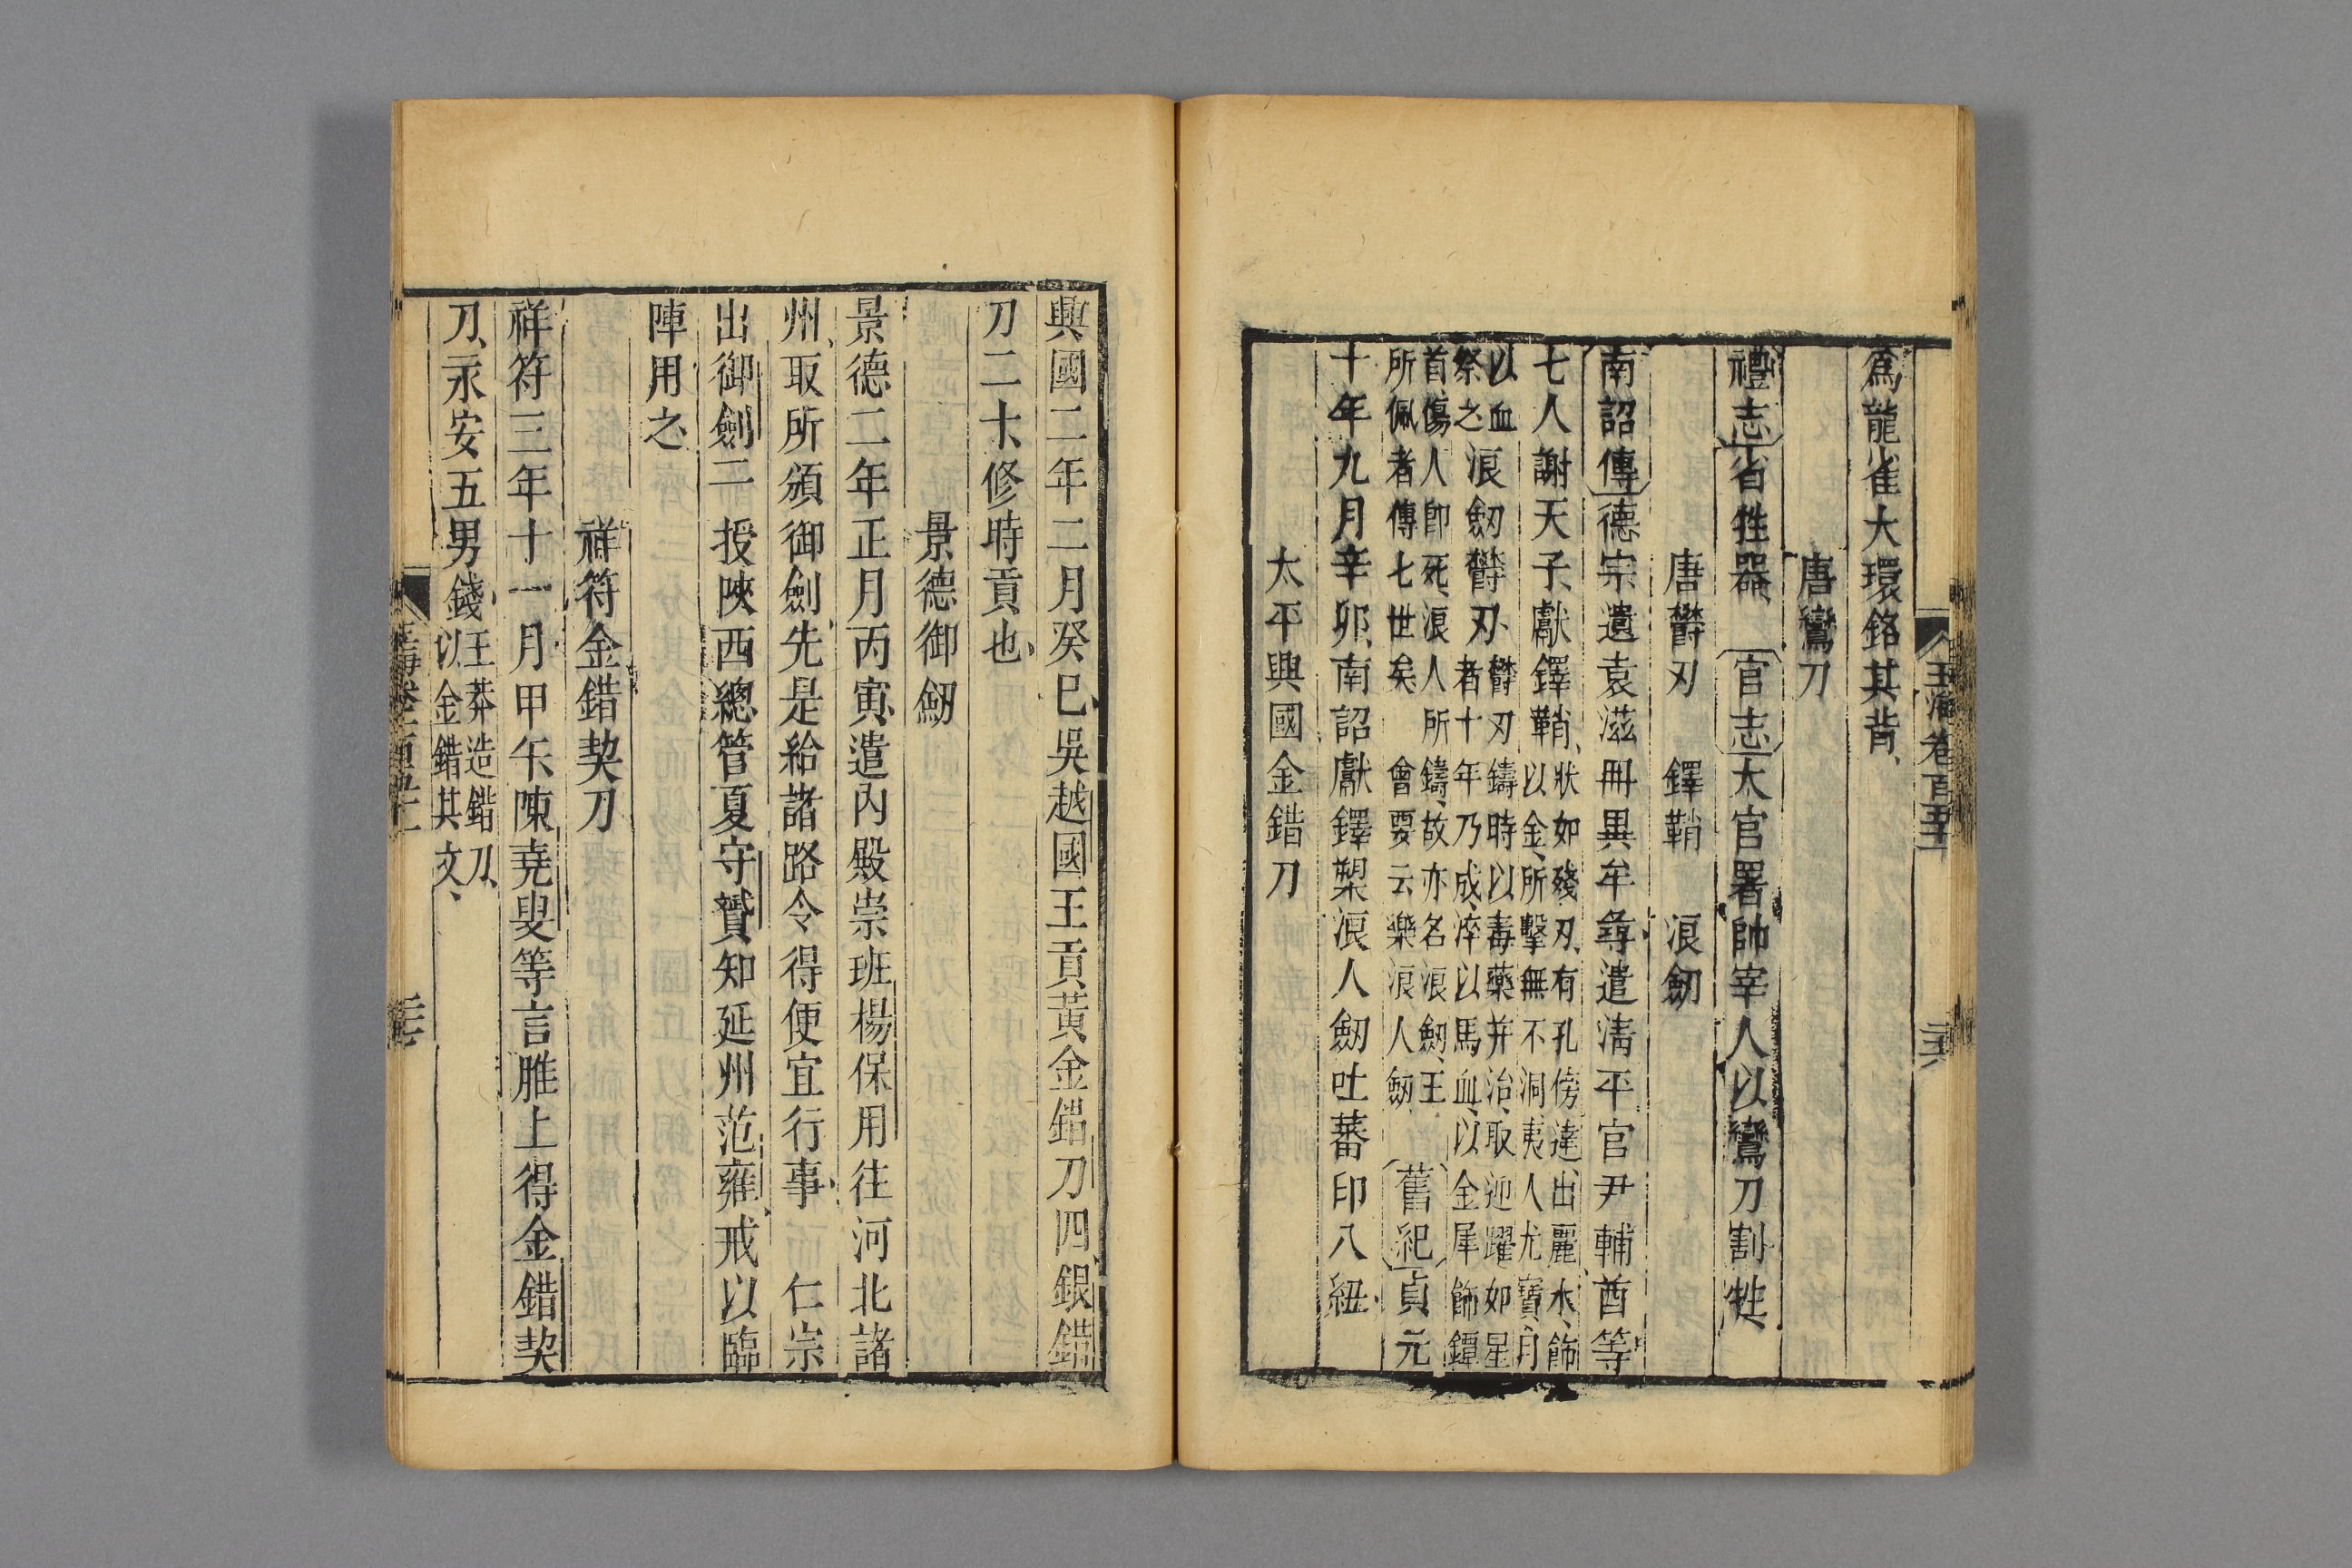 玉海卷百五十一
二十六
爲龍雀大環銘其背
唐鸞刀
禮志省牲器 官志太官署帥宰人以鸞刀割牲
唐鬱刃 鐸鞘 浪劒
南詔傳德宗遣袁滋冊異牟尋遣淸平官尹輔酋等
七人謝天子獻鐸鞘狀如殘刃有孔傍達出麗水飾
以金所擊無不洞夷人尤寶月
以血祭之浪劒鬱刃鬱刃鑄時以毒藥幷冶取迎躍如星
者十年乃成淬以馬血以金犀飾鐔
首傷人卽死浪人所鑄故亦名浪劒王
所佩者傳七世矣 會要云樂浪人劒 舊紀貞元
十年九月辛卯南詔獻鐸槊浪人劒吐蕃印八紐
太平興國金錯刀
興國二年二月癸巳吳越國王貢黃金錯刀四銀錯
刀二十修時貢也
景德御劒
景德二年正月丙寅遣內殿崇班楊保用往河北諸
州取所頒御劍先是給諸路令得便宜行事 仁宗
出御劍二授陝西總管夏守贇知延州范雍戒以臨
陣用之
祥符金錯契刀
祥符三年十一月甲午陳堯叟等言脽上得金錯契
刀永安五男錢王莽造錯刀
以金錯其文
玉海卷一百五十一
二十七